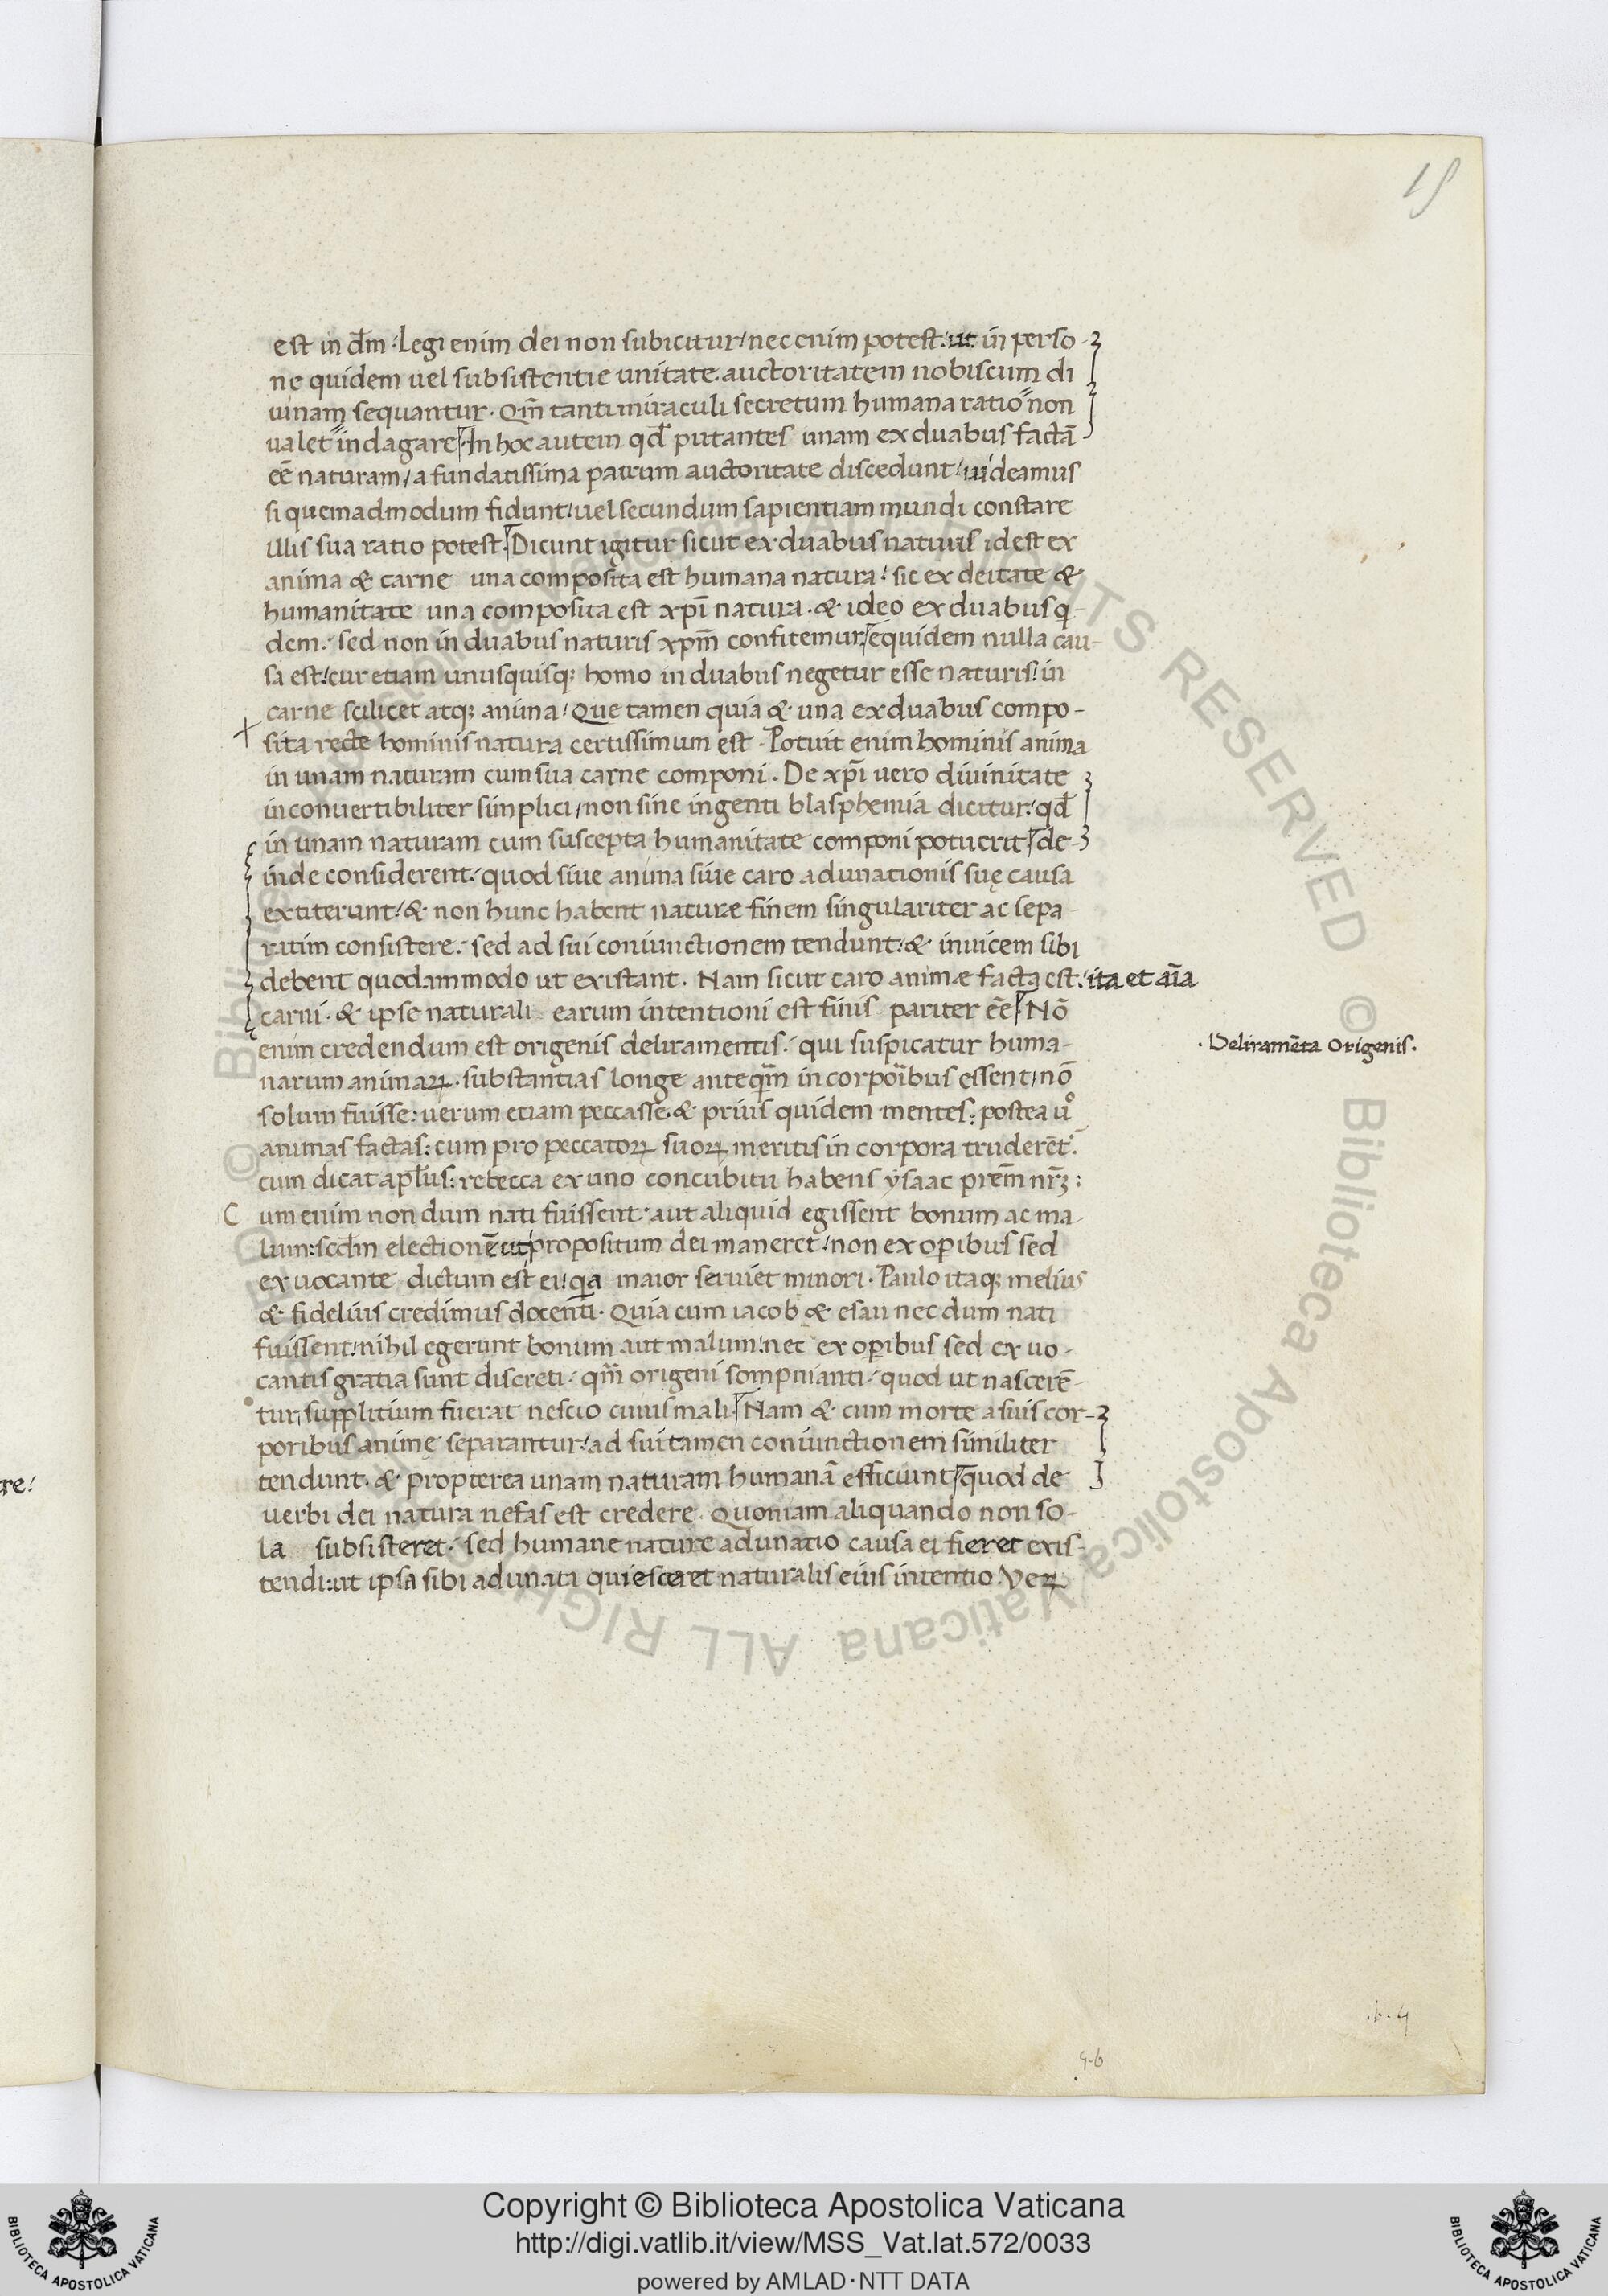 15
est in dm̄. Legi enim dei non subicitur/ nec enim potest. ut in perso-
ne quidem uel subsistentie unitate. auctoritatem nobiscum di
uinam sequantur. Qm̄ tanti miraculi secretum humana ratio non
ualet indagare. In hoc autem qd̄ putantes unam ex duabus factā
eē naturam/ a fundatissima patrum auctoritate discedunt/ uideamus
si quemadmodum fidunt/ uel secundum sapientiam mundi constare
illis sua ratio potest. Dicunt igitur sicut ex duabus naturis id est ex
anima & carne una composita est humana natura: sic ex deitate &
humanitate una composita est xp̄i natura. & ideo ex duabus q-
dem: sed non in duabus naturis xpm̄ confitemur. equidem nulla cau-
sa est/ cur etiam unusquisq; homo in duabus negetur esse naturis/ in
carne scilicet atq; anima/ Que tamen quia & una ex duabus compo-
sita recte hominis natura certissimum est. Potuit enim hominis anima
in unam naturam cum sua carne componi. De xp̄i uero diuinitate
inconuertibiliter simplici/ non sine ingenti blasphemia dicitur: qd̄
in unam naturam cum suscepta humanitate componi potuerit de-
inde considerent: quod siue anima siue caro adunationis suę causa
extiterunt/ & non hunc habent naturæ finem singulariter ac sepa-
ratim consistere: sed ad sui coniunctionem tendunt: & inuicem sibi
debent quodammodo ut existant. Nam sicut caro animæ facta est: ita et aīa
carni. & ipse naturali earum intentioni est finis pariter eē. Nō
enim credendum est origenis deliramentis: qui suspicatur huma-
· Deliramēta Origenis.
narum animaꝝ. substantias longe anteqm̄ in corporibus essent/ nō
solum fuisse: uerum etiam peccasse. & prius quidem mentes: postea uº
animas factas: cum pro peccatoꝝ suoꝝ meritis in corpora truderēt:
cum dicat apl̄us: rebecca ex uno concubitu habens ysaac prēm nr̄ꝫ:
C um enim nondum nati fuissent: aut aliquid egissent bonum ac ma-
lum: scd̄m electionē ut propositum dei maneret: non ex oꝑibus sed
ex uocante dictum est ei: qa maior seruiet minori. Paulo itaq; melius
& fidelius credimus docenti. Quia cum iacob & esau nec dum nati
fuissent/ nihil egerunt bonum aut malum: nec ex oꝑibus sed ex uo-
cantis gratia sunt discreti: qm̄ origeni sompnianti: quod ut nascerē-
tur, supplitium fuerat nescio cuius mali. Nam & cum morte a suis cor-
poribus animę separantur/ ad sui tamen coniunctionem similiter
tendunt. & propterea unam naturam humanā efficiunt quod de
uerbi dei natura nefas est credere. Quoniam aliquando non so-
la subsisteret: sed humane nature adunatio causa ei fieret exis-
tendi: ut ipsa sibi adunata quiesceret naturalis eius intentio. Veꝝ
re!
Copyright © Biblioteca Apostolica Vaticana
http://digi.vatlib.it/view/MSS_Vat.lat.572/0033
powered by AMLAD·NTT DATA
BIBLIOTECA APOSTOLICA VATICANA
BIBLIOTECA APOSTOLICA VATICANA
© Biblioteca Apostolica Vaticana ALL RIGHTS RESERVED